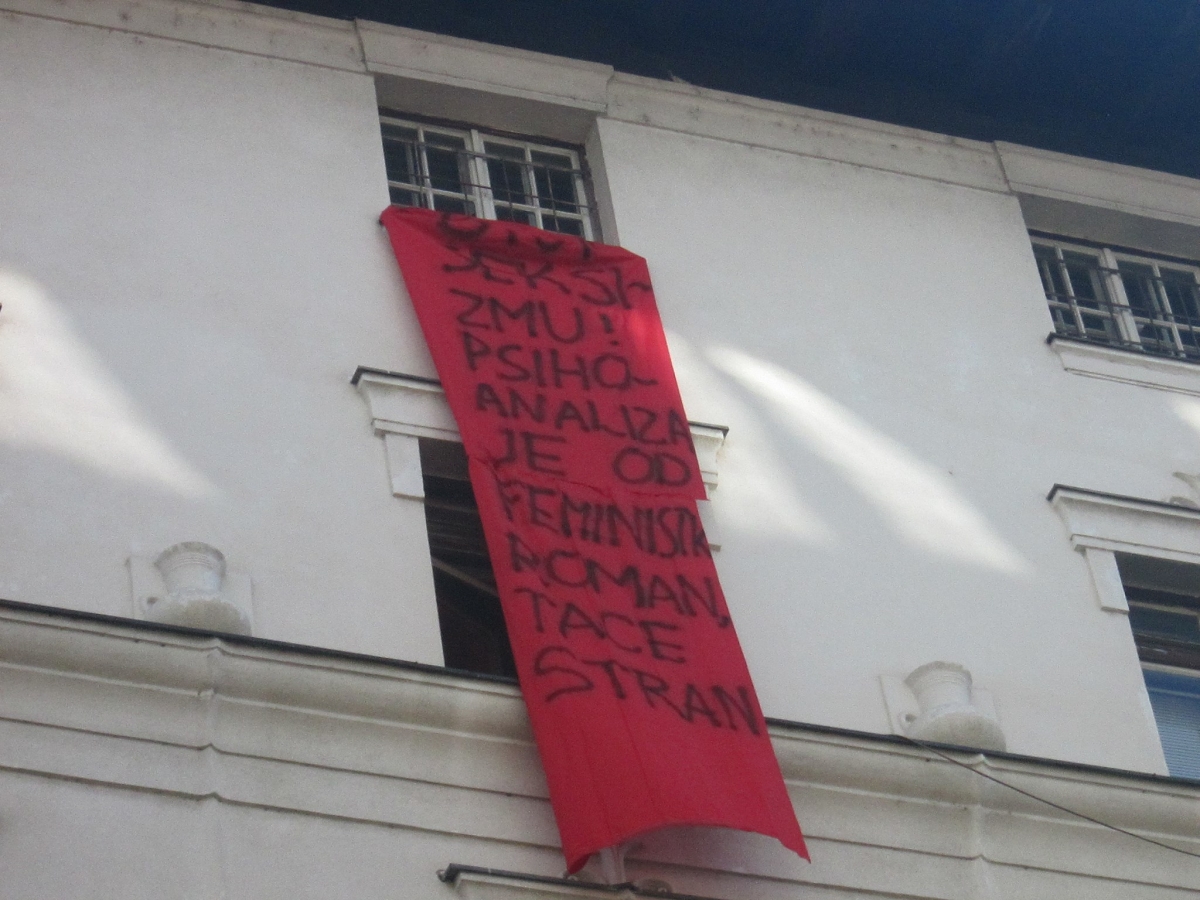 SEKSI-
ZMU!
PSIHO-
ANALIZA
JE OD
FEMINISTK
ROMAN,
TACE
STRAN